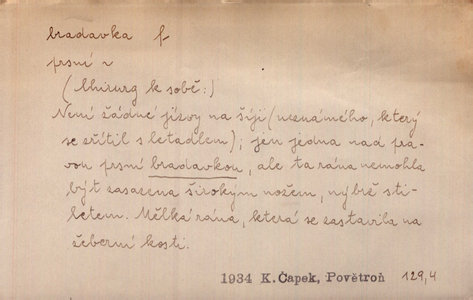 bradavka f
prsní ~
(Chirurg k sobě:)
Není žádné jízvy na šíji (neznámého, který
se zřítil s letadlem); jen jedna nad pra-
vou prsní bradavkou, ale ta rána nemohla
být zasazena širokým nožem, nýbrž sti-
letem. Mělká rána, která se zastavila na
žeberní kosti.
1934 K.Čapek, Povětroň 129,4